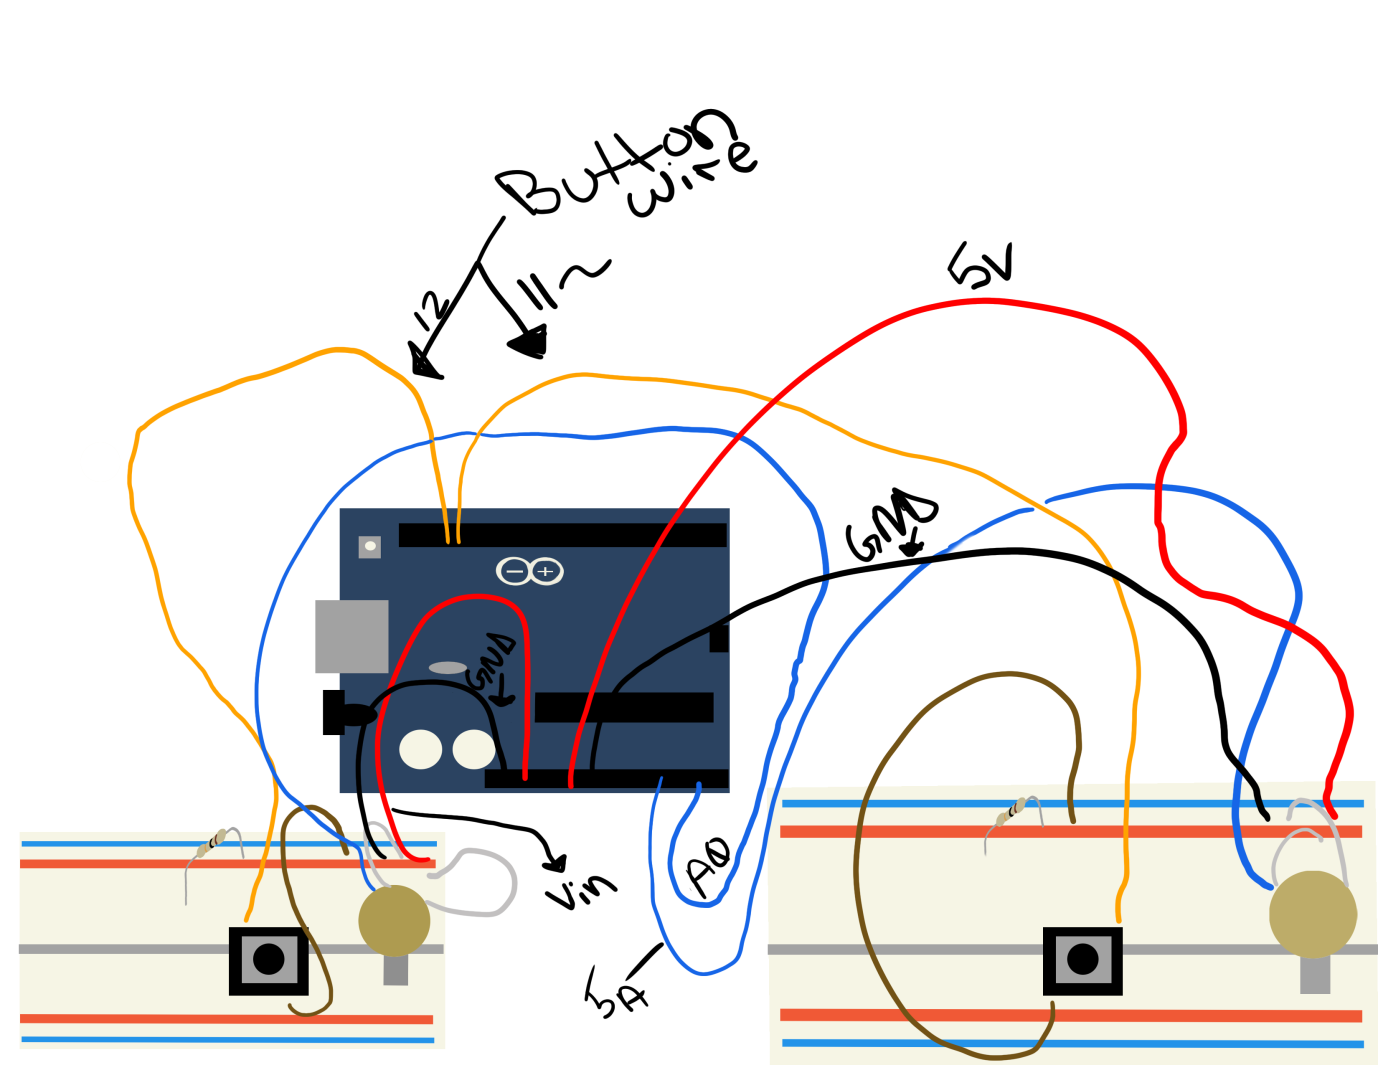 Button
wire
12
11~
5V
GND
GND
Vin
A0
5A